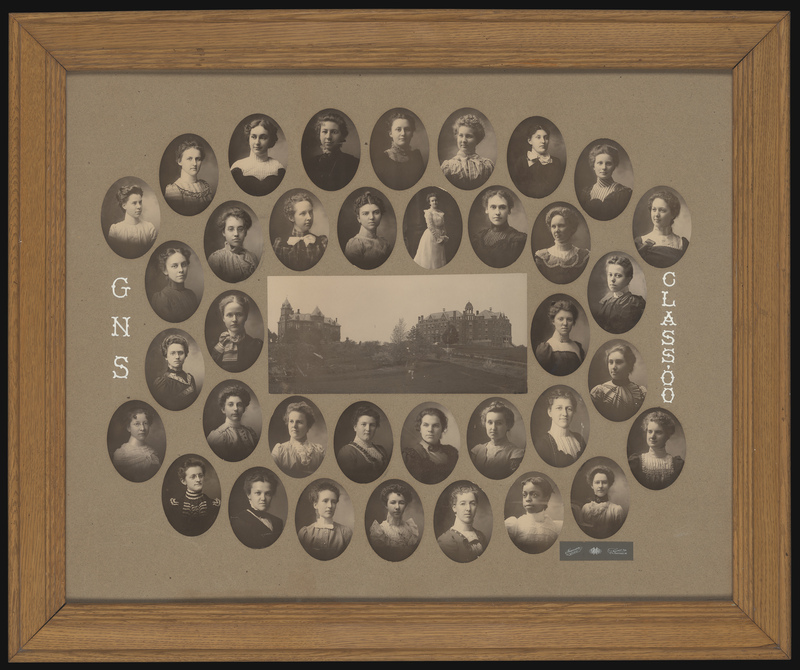 G
N
S
CLASS·00